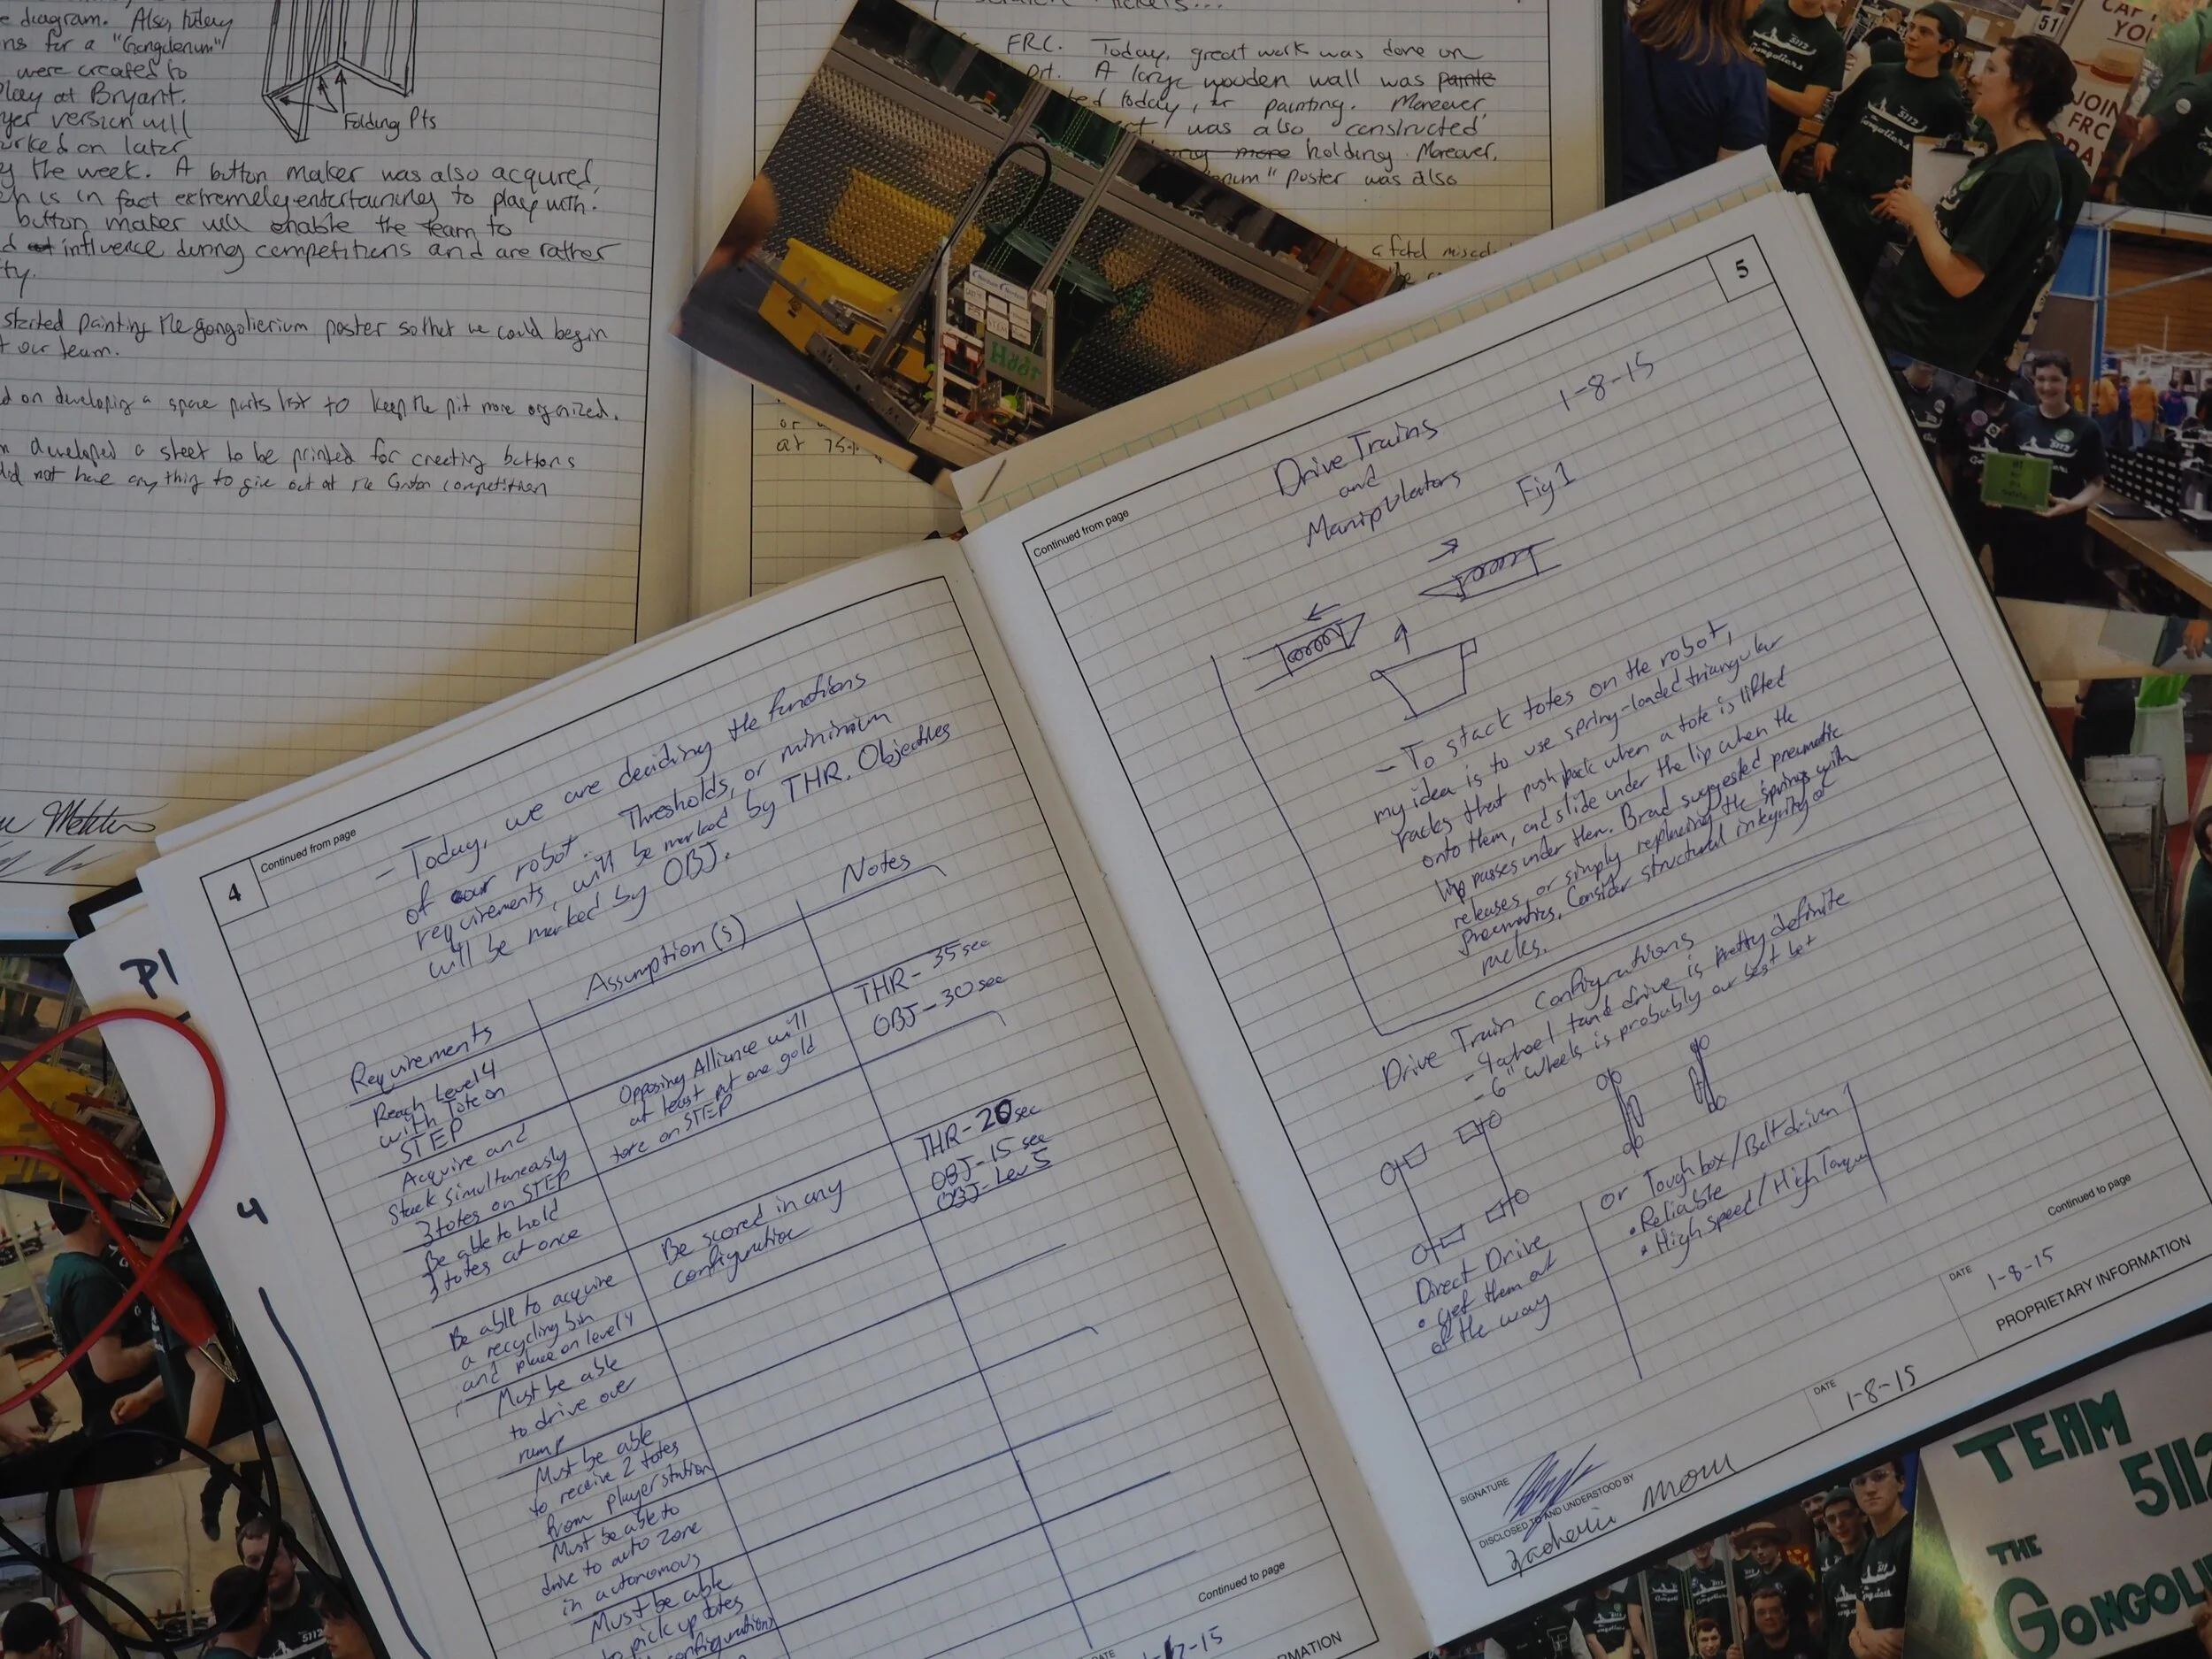 e diagram. Also, tutery
ns for a "Gongolierium"
were created to
play at Bryant.
yer version will
rked on later
y the week. A button maker was also acquired,
ch is in fact extremely entertaining to play with.
button maker will enable the team to
d influence during competitions and are rather
ty.
started painting the gongolierium poster so that we could begin
t our team.
d on developing a spare parts list to keep the pit more organized.
n developed a sheet to be printed for creating buttons
did not have anything to give out at the Groton competition
Folding Pts
FRC. Today, great work was done on
ort. A large wooden wall was painte
ted today, for painting. Moreover,
rt was also constructed
more holding. Moreover,
enum" poster was also
a fatal
or
at 75
51
JOIN
FRC
5112
the
Gongoliers
P1
4
4
Continued from page
- Today, we are deciding the functions
of our robot. Thresholds, or minimum
requirements, will be marked by THR. Objectives
will be marked by OBJ.
Requirements
Assumption(s)
Notes
Reach Level 4
with Tote on
STEP
Opposing Alliance will
at least put one gold
tote on STEP
THR - 35 sec
OBJ - 30 sec
Acquire and
Stack simultaneously
3 totes on STEP
Be able to hold
3 totes at once
Be able to acquire
a recycling bin
and place on level 4
Be scored in any
configuration
THR - 20 sec
OBJ - 15 sec
OBJ - Lev 5
Must be able
to drive over
ramp
Must be able
to receive 2 totes
from player station
Must be able to
drive to auto zone
in autonomous
Must be able
to pick up totes
configuration)
Continued to page
7-15
5
Continued from page
Drive Trains
and
Manipulators
1-8-15
Fig 1
- To stack totes on the robot,
my idea is to use spring-loaded triangular
racks that push back when a tote is lifted
onto them, and slide under the lip when the
lip passes under them. Brad suggested pneumatic
releases, or simply replacing the springs with
pneumatics. Consider structural integrity of
racks.
Drive Train Configurations
- 4 wheel tank drive is pretty definite
- 6" wheels is probably our best bet
Direct Drive
• get them out
of the way
or Toughbox/Belt driven
• Reliable
• High speed/High Torque
Continued to page
SIGNATURE
DATE
1-8-15
DISCLOSED TO AND UNDERSTOOD BY
DATE
1-8-15
PROPRIETARY INFORMATION
TEAM
5112
THE
GONGOLI